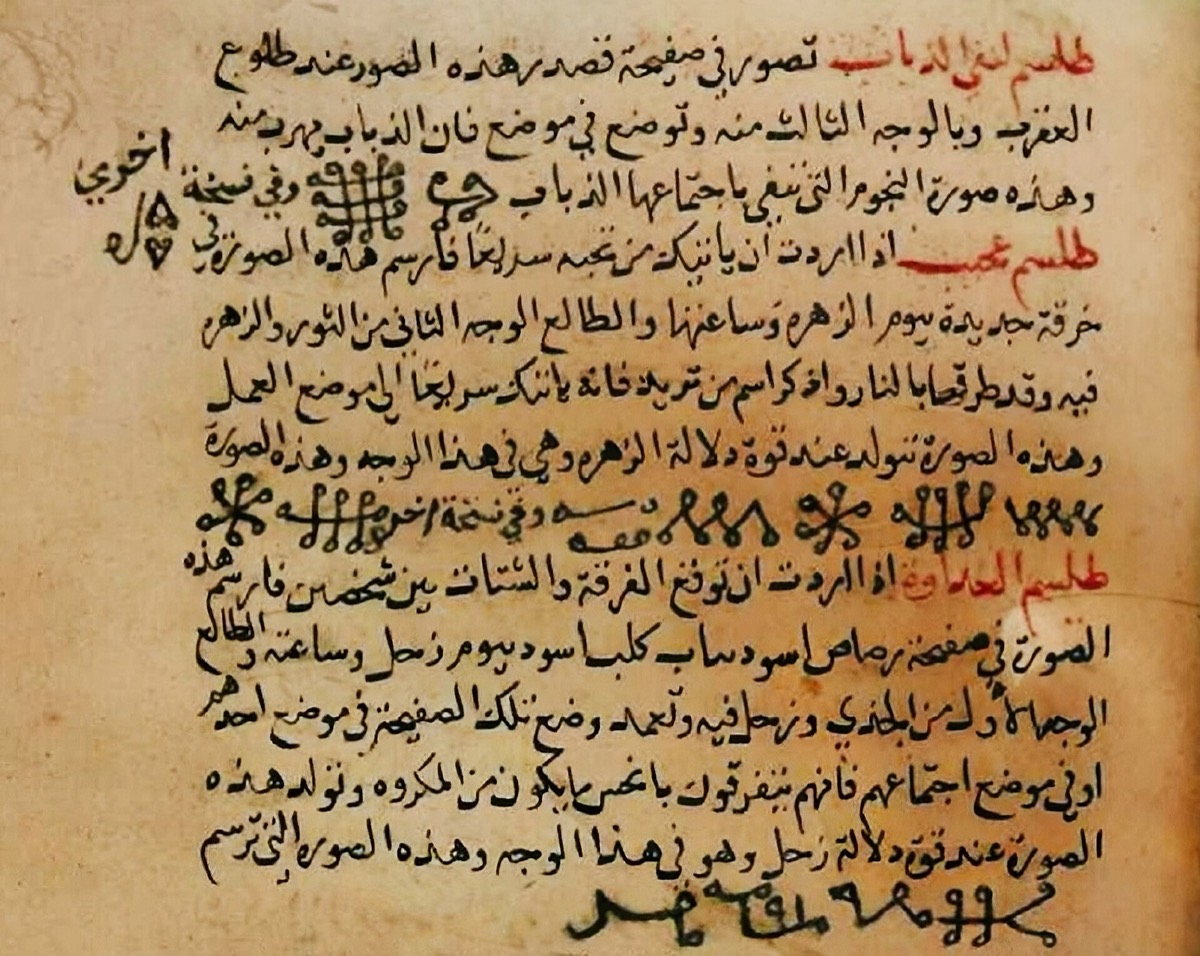 طلسم لنفي الذباب تصور في صفيحة قصدير هذه الصور عند طلوع
العقرب وبالوجه الثالث منه وتوضع في موضع فان الذباب يهرب منه
وهذه صورة النجوم التي تنفي باجتماعها الذباب وفي نسخة اخري
طلسم عجيب اذا اردت ان ياتيك من تحبه سريعًا فارسم هذه الصورة في
خرقة جديدة بيوم الزهره وساعتها والطالع الوجه الثاني من الثور والزهره
فيه وقد طرقها بالنار واذكر اسم من تريد فانه ياتيك سريعًا الي موضع العمل
وهذه الصورة تتولد عند قوة دلالة الزهره وهي في هذا الوجه وهذه الصورة
وفي نسخة اخر
طلسم العداوة اذا اردت ان توقع الفرقة والشتات بين شخصين فارسم هذه
الصورة في صفيحة رصاص اسود بناب كلب اسود بيوم زحل وساعته والطالع
الوجه الاول من الجدي وزحل فيه وضع تلك الصفيحة في موضع احدهم
او في موضع اجتماعهم فانهم يتفرقون بانحس ما يكون من المكروه وتولد هذه
الصورة عند قوة دلالة زحل وهو في هذا الوجه وهذه الصورة التي ترسم